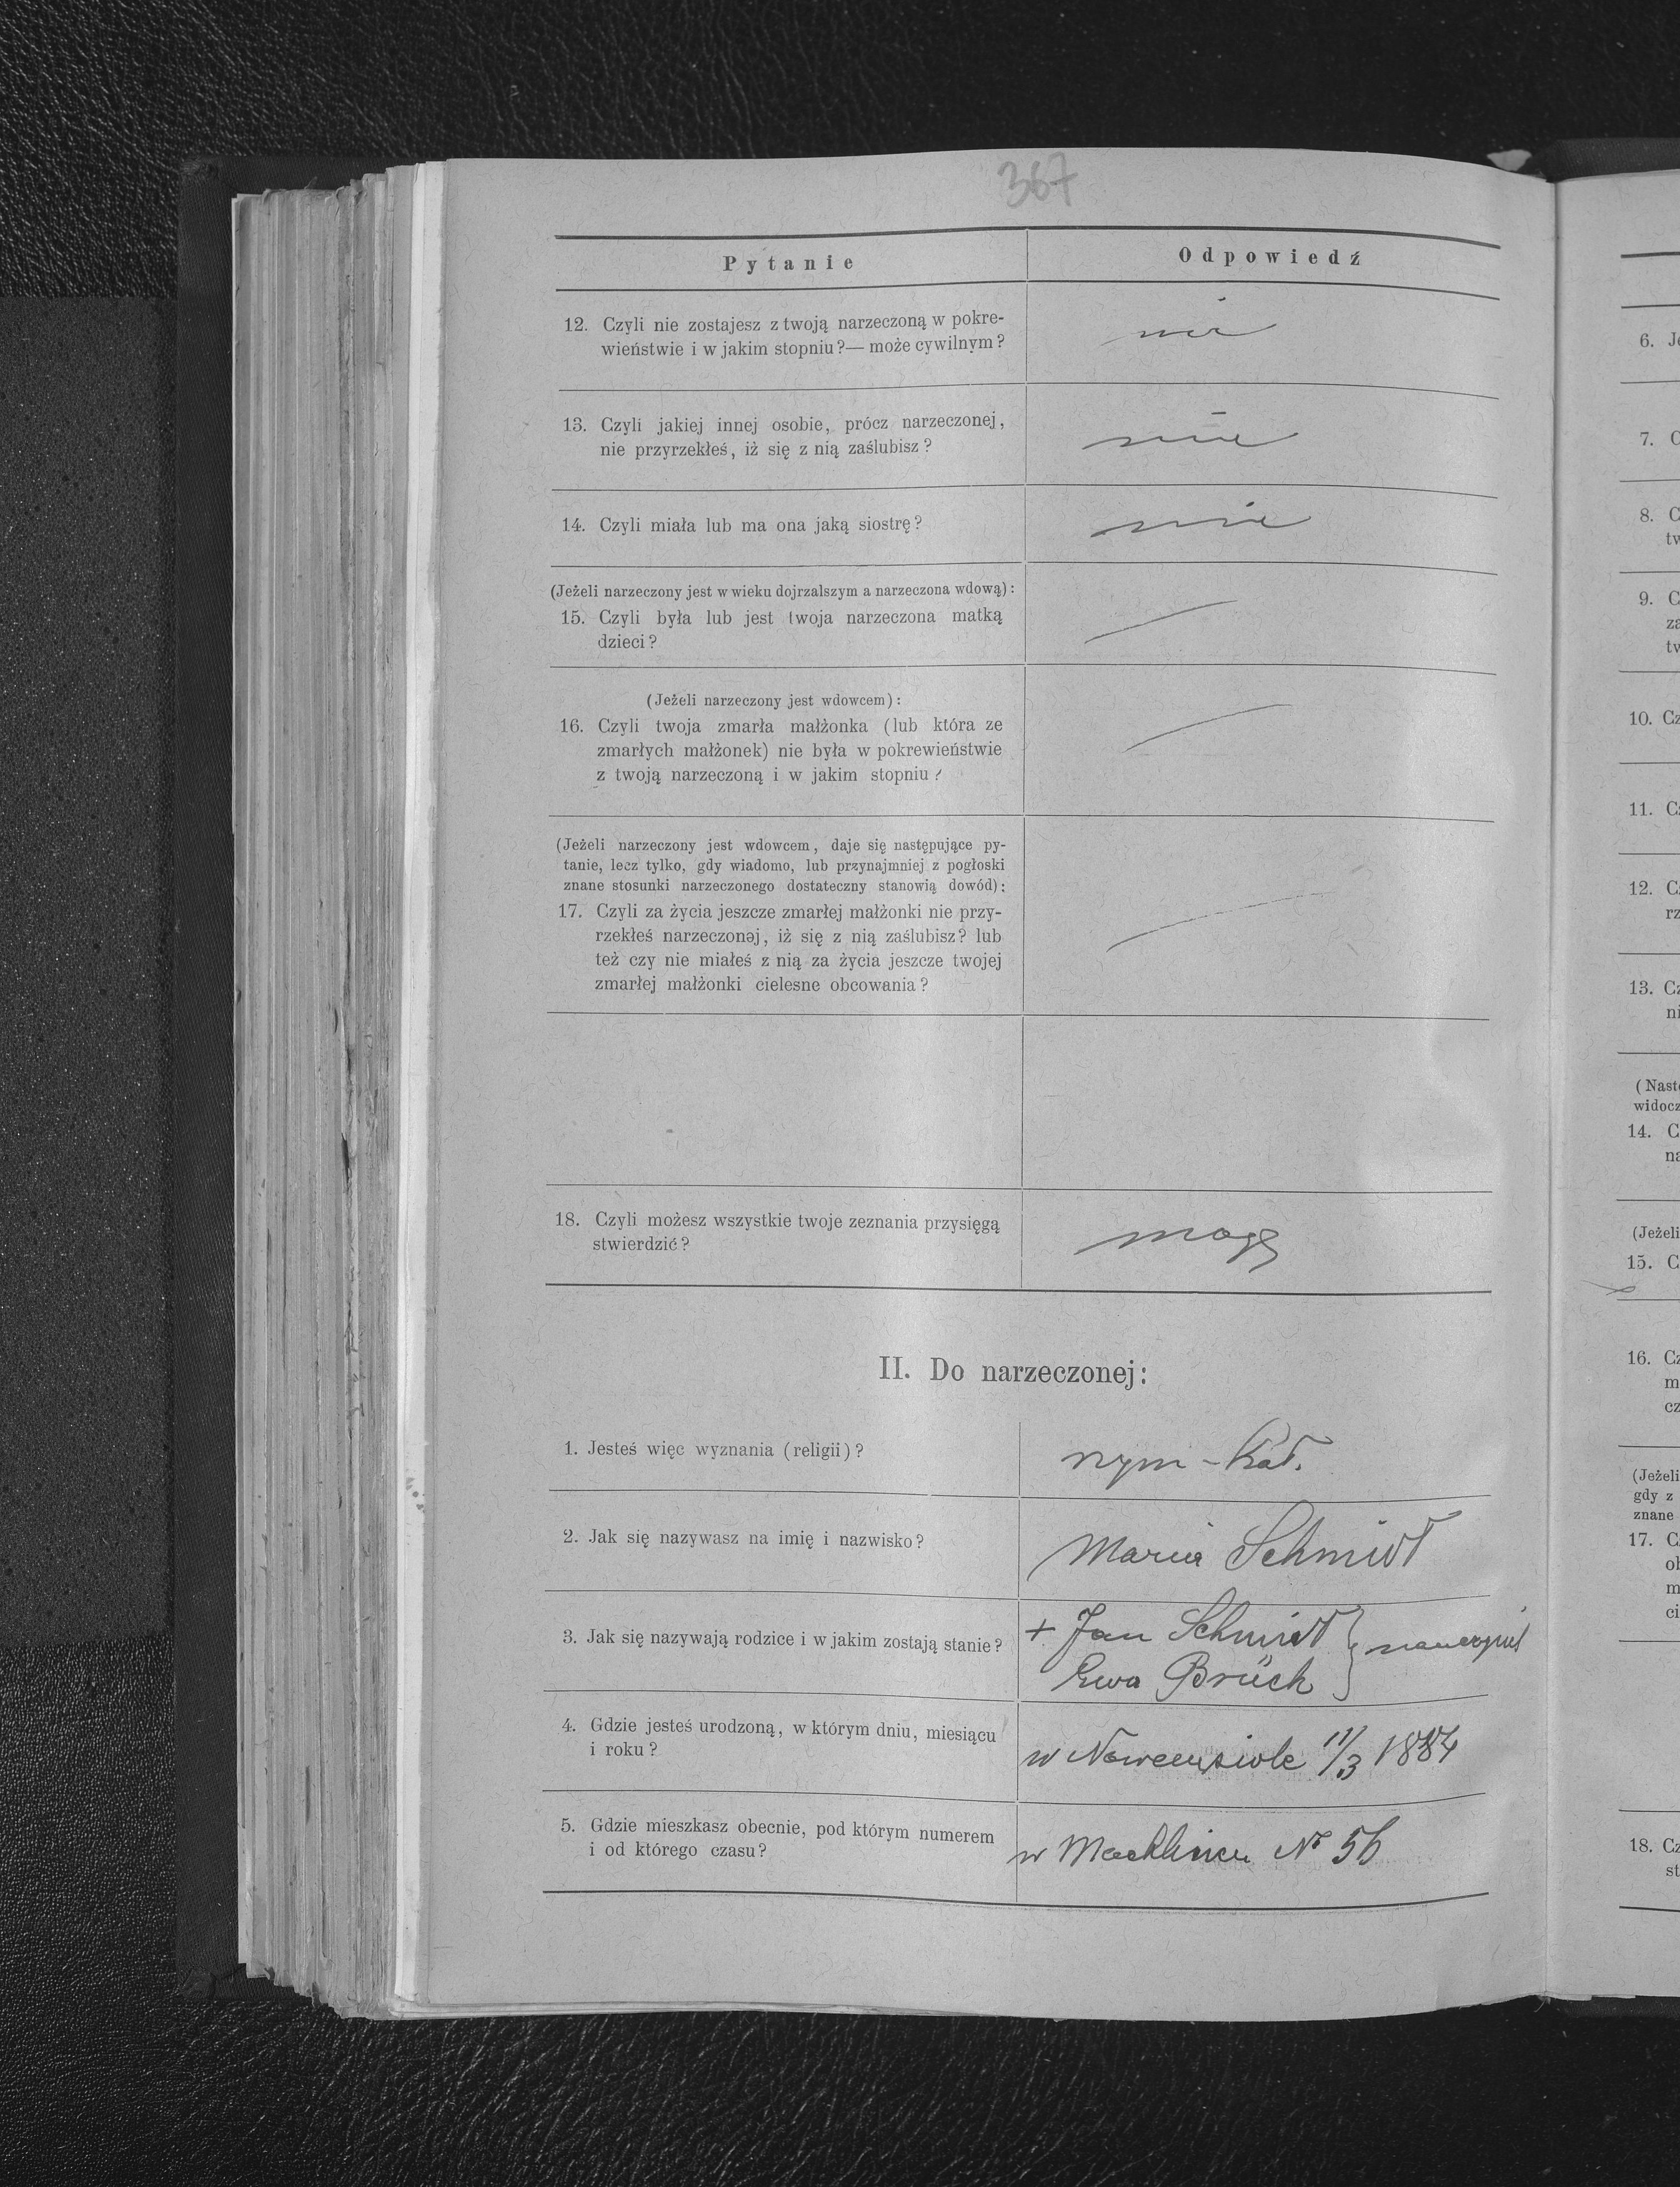 367
Pytanie
Odpowiedź
12. Czyli nie zostajesz z twoją narzeczoną w pokre-
wieństwie i w jakim stopniu?— może cywilnym?
nie
13. Czyli jakiej innej osobie, prócz narzeczonej,
nie przyrzekłeś, iż się z nią zaślubisz?
nie
14. Czyli miała lub ma ona jaką siostrę?
nie
(Jeżeli narzeczony jest w wieku dojrzalszym a narzeczona wdową):
15. Czyli była lub jest twoja narzeczona matką
dzieci?
(Jeżeli narzeczony jest wdowcem):
16. Czyli twoja zmarła małżonka (lub która ze
zmarłych małżonek) nie była w pokrewieństwie
z twoją narzeczoną i w jakim stopniu?
(Jeżeli narzeczony jest wdowcem, daje się następujące py-
tanie, lecz tylko, gdy wiadomo, lub przynajmniej z pogłoski
znane stosunki narzeczonego dostateczny stanowią dowód):
17. Czyli za życia jeszcze zmarłej małżonki nie przy-
rzekłeś narzeczonej, iż się z nią zaślubisz? lub
też czy nie miałeś z nią za życia jeszcze twojej
zmarłej małżonki cielesne obcowania?
18. Czyli możesz wszystkie twoje zeznania przysięgą
stwierdzić?
mogę
II. Do narzeczonej:
1. Jesteś więc wyznania (religii)?
rzym-kat.
2. Jak się nazywasz na imię i nazwisko?
Maria Schmidt
3. Jak się nazywają rodzice i w jakim zostają stanie?
+ Jan Schmidt
Ewa Brück
4. Gdzie jesteś urodzoną, w którym dniu, miesiącu
i roku?
w 11/3 1884
5. Gdzie mieszkasz obecnie, pod którym numerem
i od którego czasu?
w Machlińcu No 56
6. Je
7. C
8. C
tw
9. C
za
tw
10. Cz
11. Cz
12. Cz
rz
13. Cz
ni
(Nastę
widocz
14. C
na
(Jeżeli
15. C
16. Cz
m
cz
(Jeżeli
gdy z
znane
17. Cz
ob
m
ci
18. Cz
st